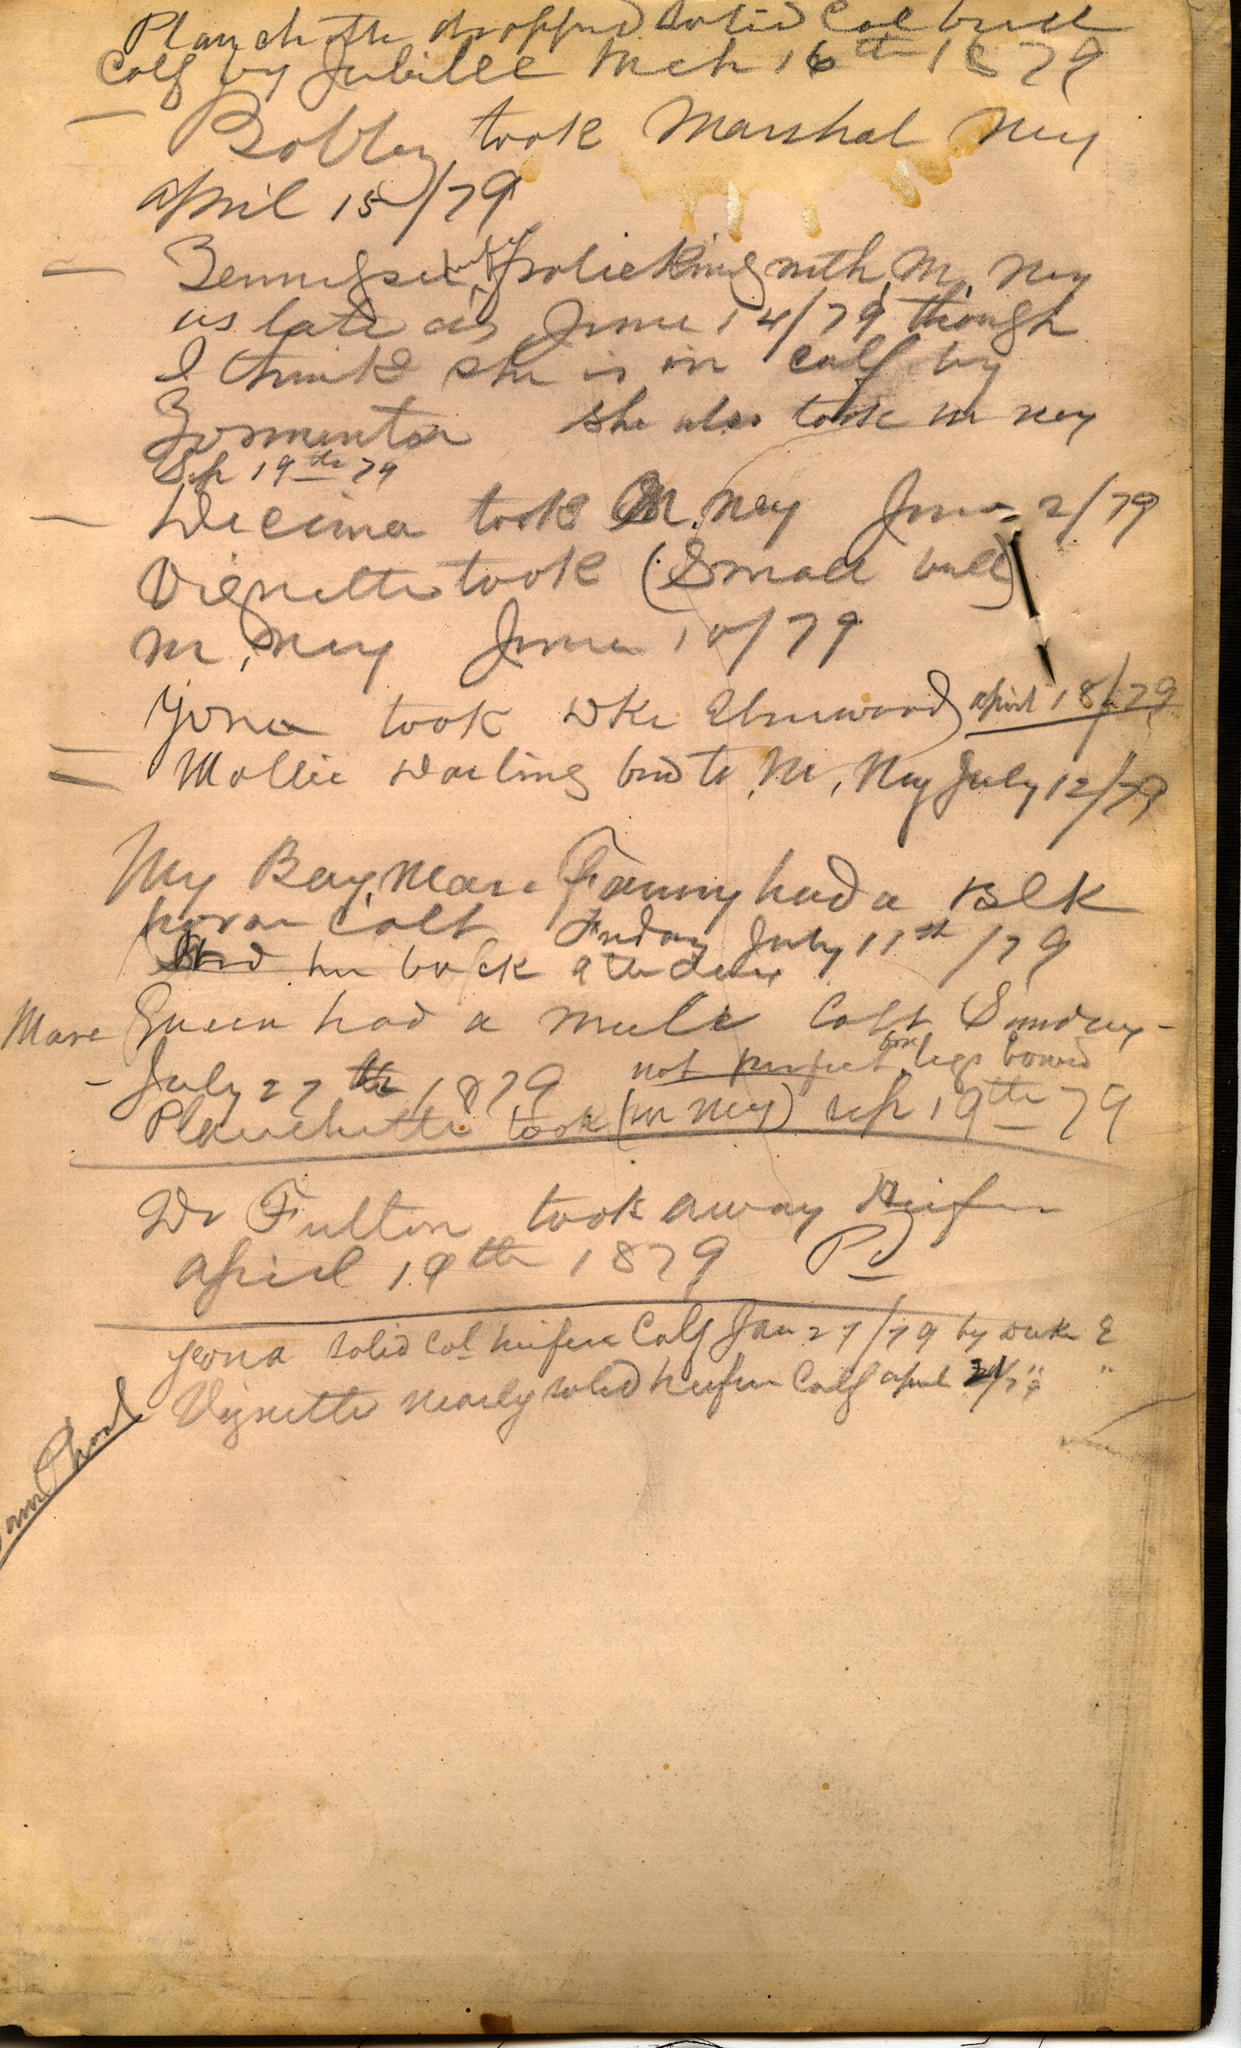 Planchette dropped solid Col bull
Calf by Jubilee Mch 16th 1879
Bobby took Marshal Ney
April 15/79
frolicking with M. Ney
as late as June 14/79 though
I think she is in calf by
Tormentor she also took M Ney
Sep 19th 79
Decima took M. Ney June 2/79
Vignette took (Small bull)
M. Ney June 10/79
Yona took Dke Elmwood April 18/79
Mollie Darling bred to M. Ney July 12/79
My Bay Mare Fanny had a Blk
horse Colt Friday July 11th /79
her back
Mare Queen had a mule Colt Sunday
July 27th 1879 not perfect fore legs bowed
Planchette took (M Ney) Sep 19th 79
Dr Fulton took away Heifer
April 19th 1879 Pd
Yona solid Col heifer Calf Jan 27/79 by Duke E
Vignette nearly solid heifer Calf April "